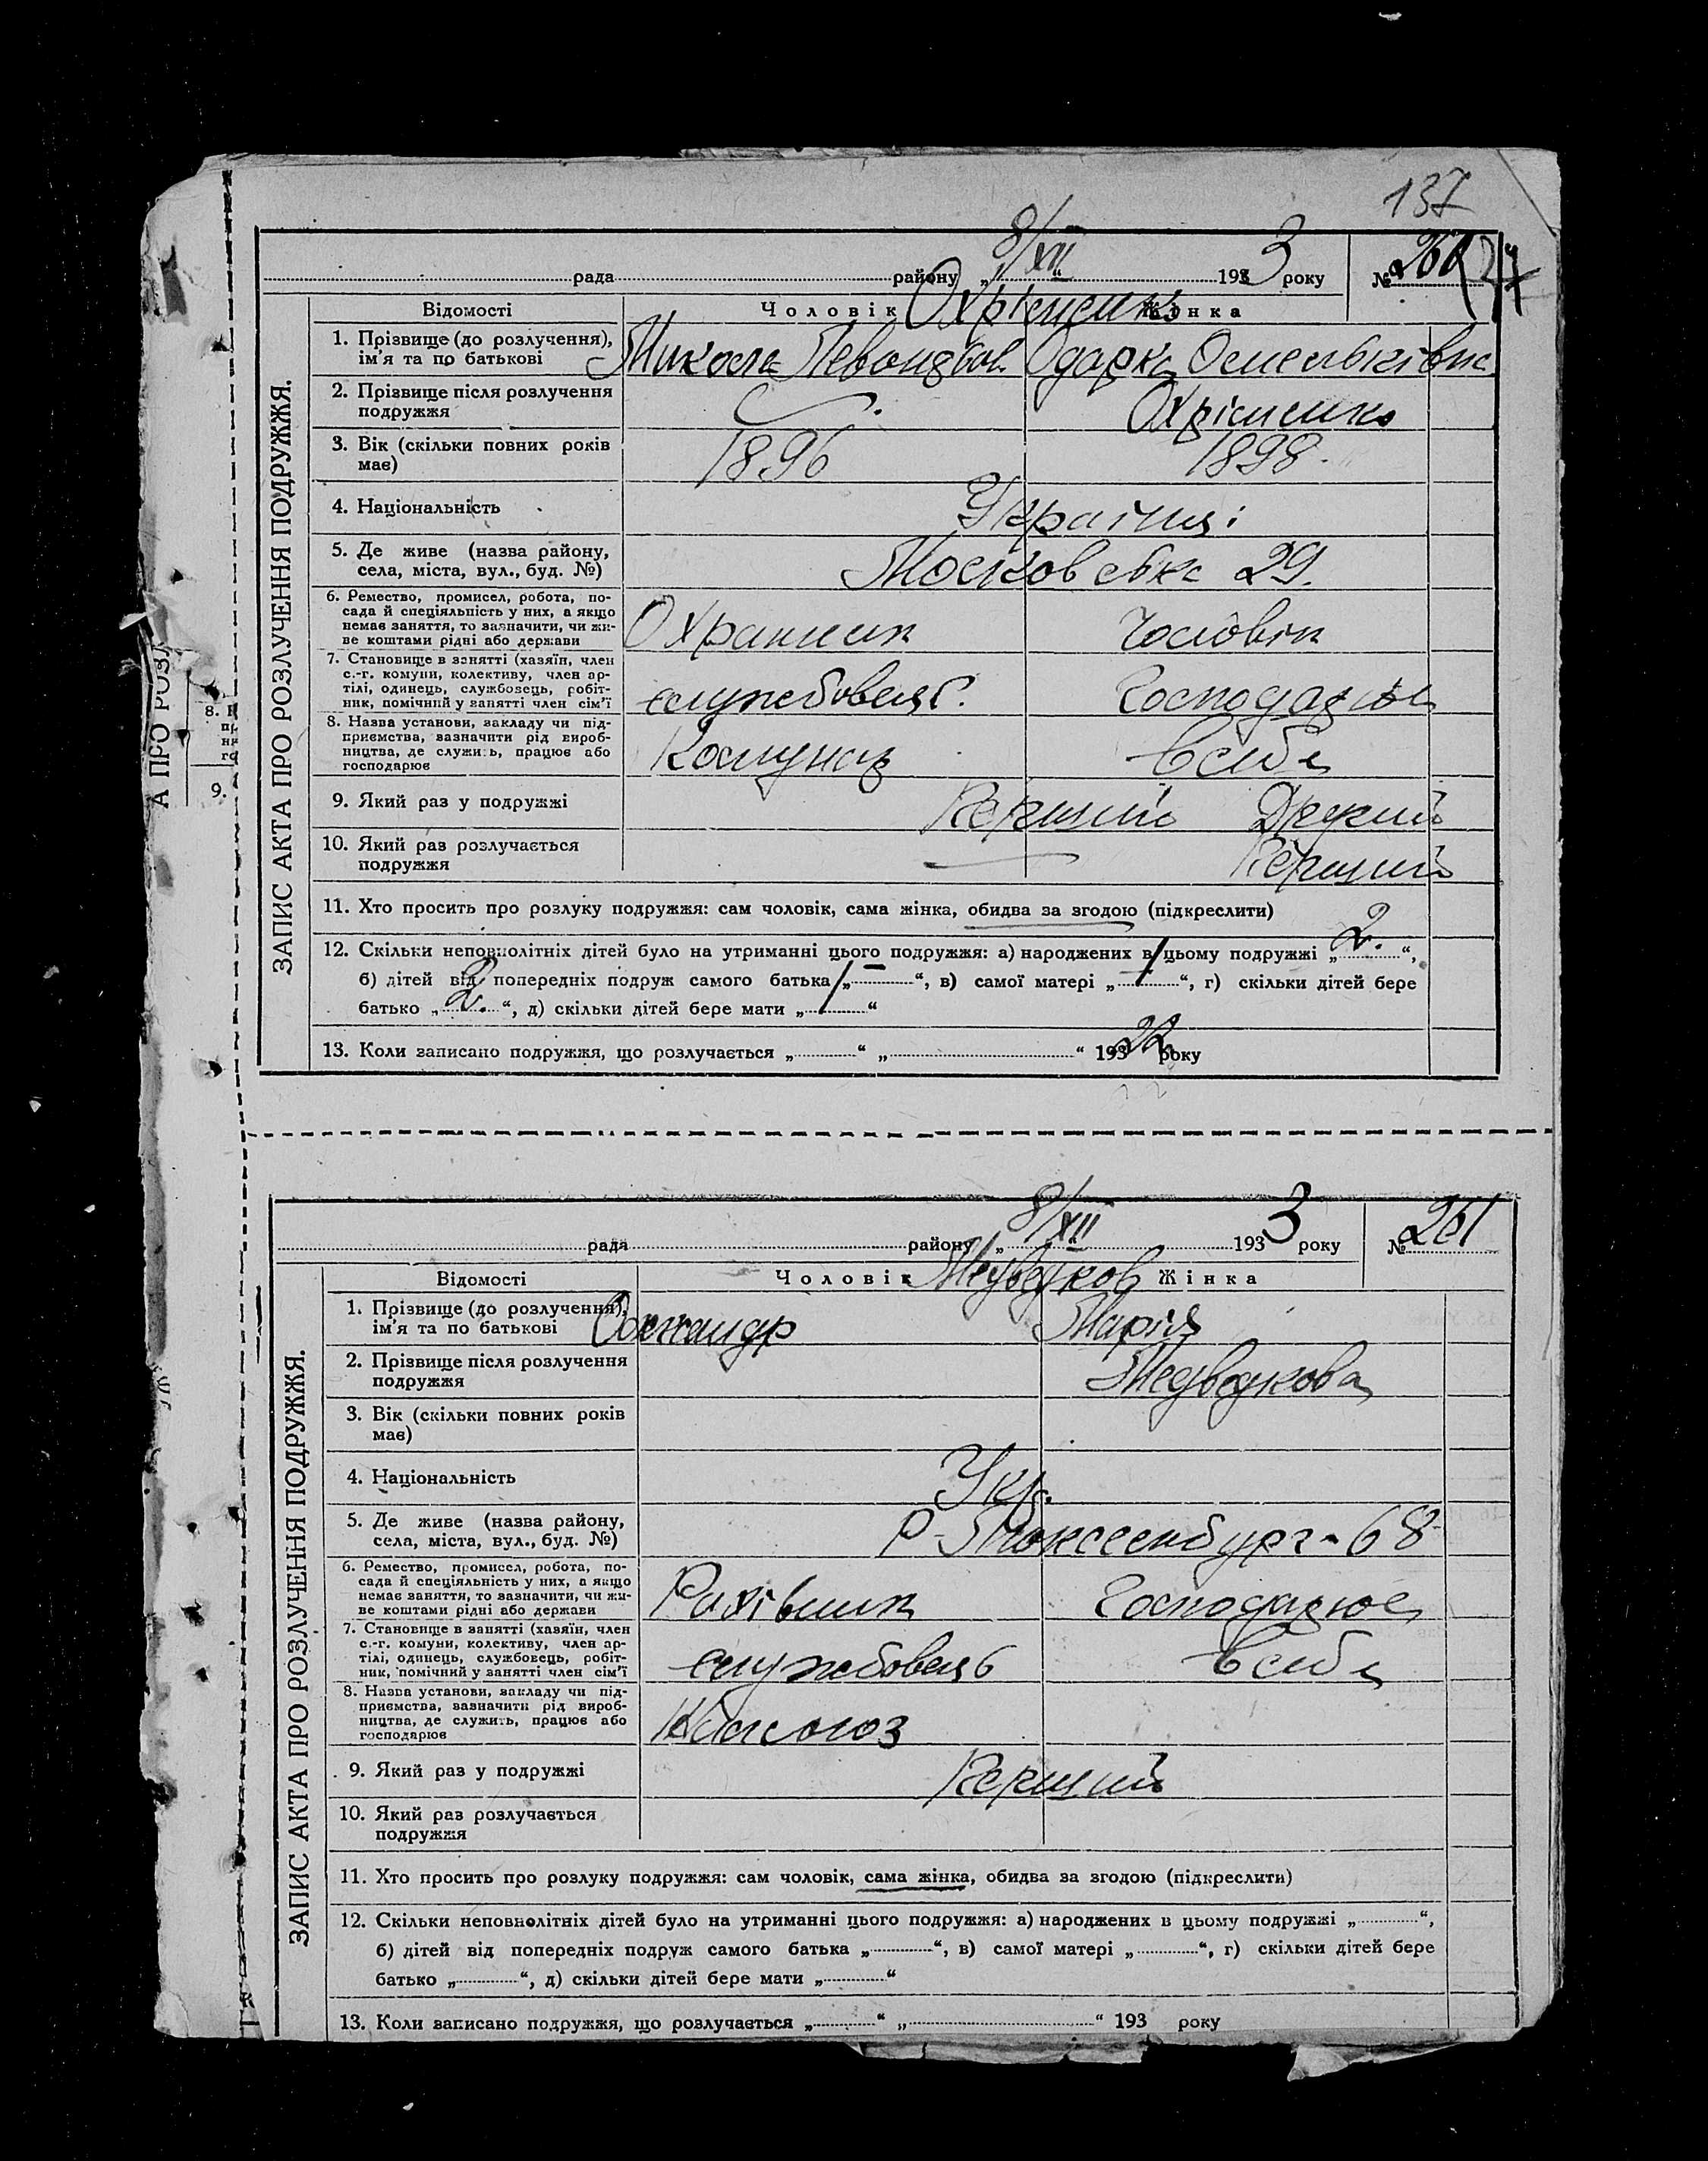 137
8/XII
рада району „ “ 193 3 року № 260
Відомості Чоловік Жінка
Охріменко
1. Прізвище (до розлучення),
ім'я та по батькові Микола Одарка Омельківна
2. Прізвище після розлучення
подружжя Охріменко
3. Вік (скільки повних років
має) 1896 1898.
4. Національність Українці
5. Де живе (назва району,
села, міста, вул., буд. №) Московська 29.
6. Ремество, промисел, робота, по-
сада й спеціяльність у них, а якщо
немає заняття, то зазначити, чи жи-
ве коштами рідні або держави Охранник Чоловік
7. Становище в занятті (хазяїн, член
с.-г. комуни, колективу, член ар-
тілі, одинець, службовець, робіт-
ник, помічний у занятті член сім'ї службовець.
8. Назва установи, закладу чи під-
приємства, зазначити рід вироб-
ництва, де служить, працює або
господарює в себе
9. Який раз у подружжі Перший Другий
10. Який раз розлучається
подружжя Перший
11. Хто просить про розлуку подружжя: сам чоловік, сама жінка, обидва за згодою (підкреслити)
12. Скільки неповнолітніх дітей було на утриманні цього подружжя: а) народжених в цьому подружжі „ 2. “,
б) дітей від попередніх подруж самого батька „ — “, в) самої матері „ — “, г) скільки дітей бере
батько „ 2. “, д) скільки дітей бере мати „ “
13. Коли записано подружжя, що розлучається „ “ „ “ 193 22 року
ЗАПИС АКТА ПРО РОЗЛУЧЕННЯ ПОДРУЖЖЯ.
А ПРО РОЗЛ
8.
9.
8/XII
рада району „ 193 3 року № 261
Відомості Чоловік Жінка
Медведков
1. Прізвище (до розлучення),
ім'я та по батькові Олександр Марія
2. Прізвище після розлучення
подружжя Медведкова
3. Вік (скільки повних років
має)
4. Національність Укр.
5. Де живе (назва району,
села, міста, вул., буд. №) Р-Люксенбург-68
6. Ремество, промисел, робота, по-
сада й спеціяльність у них, а якщо
немає заняття, то зазначити, чи жи-
ве коштами рідні або держави Рахівник Господарює
7. Становище в занятті (хазяїн, член
с.-г. комуни, колективу, член ар-
тілі, одинець, службовець, робіт-
ник, помічний у занятті член сім'ї службовець в себе
8. Назва установи, закладу чи під-
приємства, зазначити рід вироб-
ництва, де служить, працює або
господарює
9. Який раз у подружжі Перший
10. Який раз розлучається
подружжя
11. Хто просить про розлуку подружжя: сам чоловік, сама жінка, обидва за згодою (підкреслити)
12. Скільки неповнолітніх дітей було на утриманні цього подружжя: а) народжених в цьому подружжі „ “,
б) дітей від попередніх подруж самого батька „ “, в) самої матері „ “, г) скільки дітей бере
батько „ “, д) скільки дітей бере мати „ “
13. Коли записано подружжя, що розлучається „ “ „ “ 193 року
ЗАПИС АКТА ПРО РОЗЛУЧЕННЯ ПОДРУЖЖЯ.